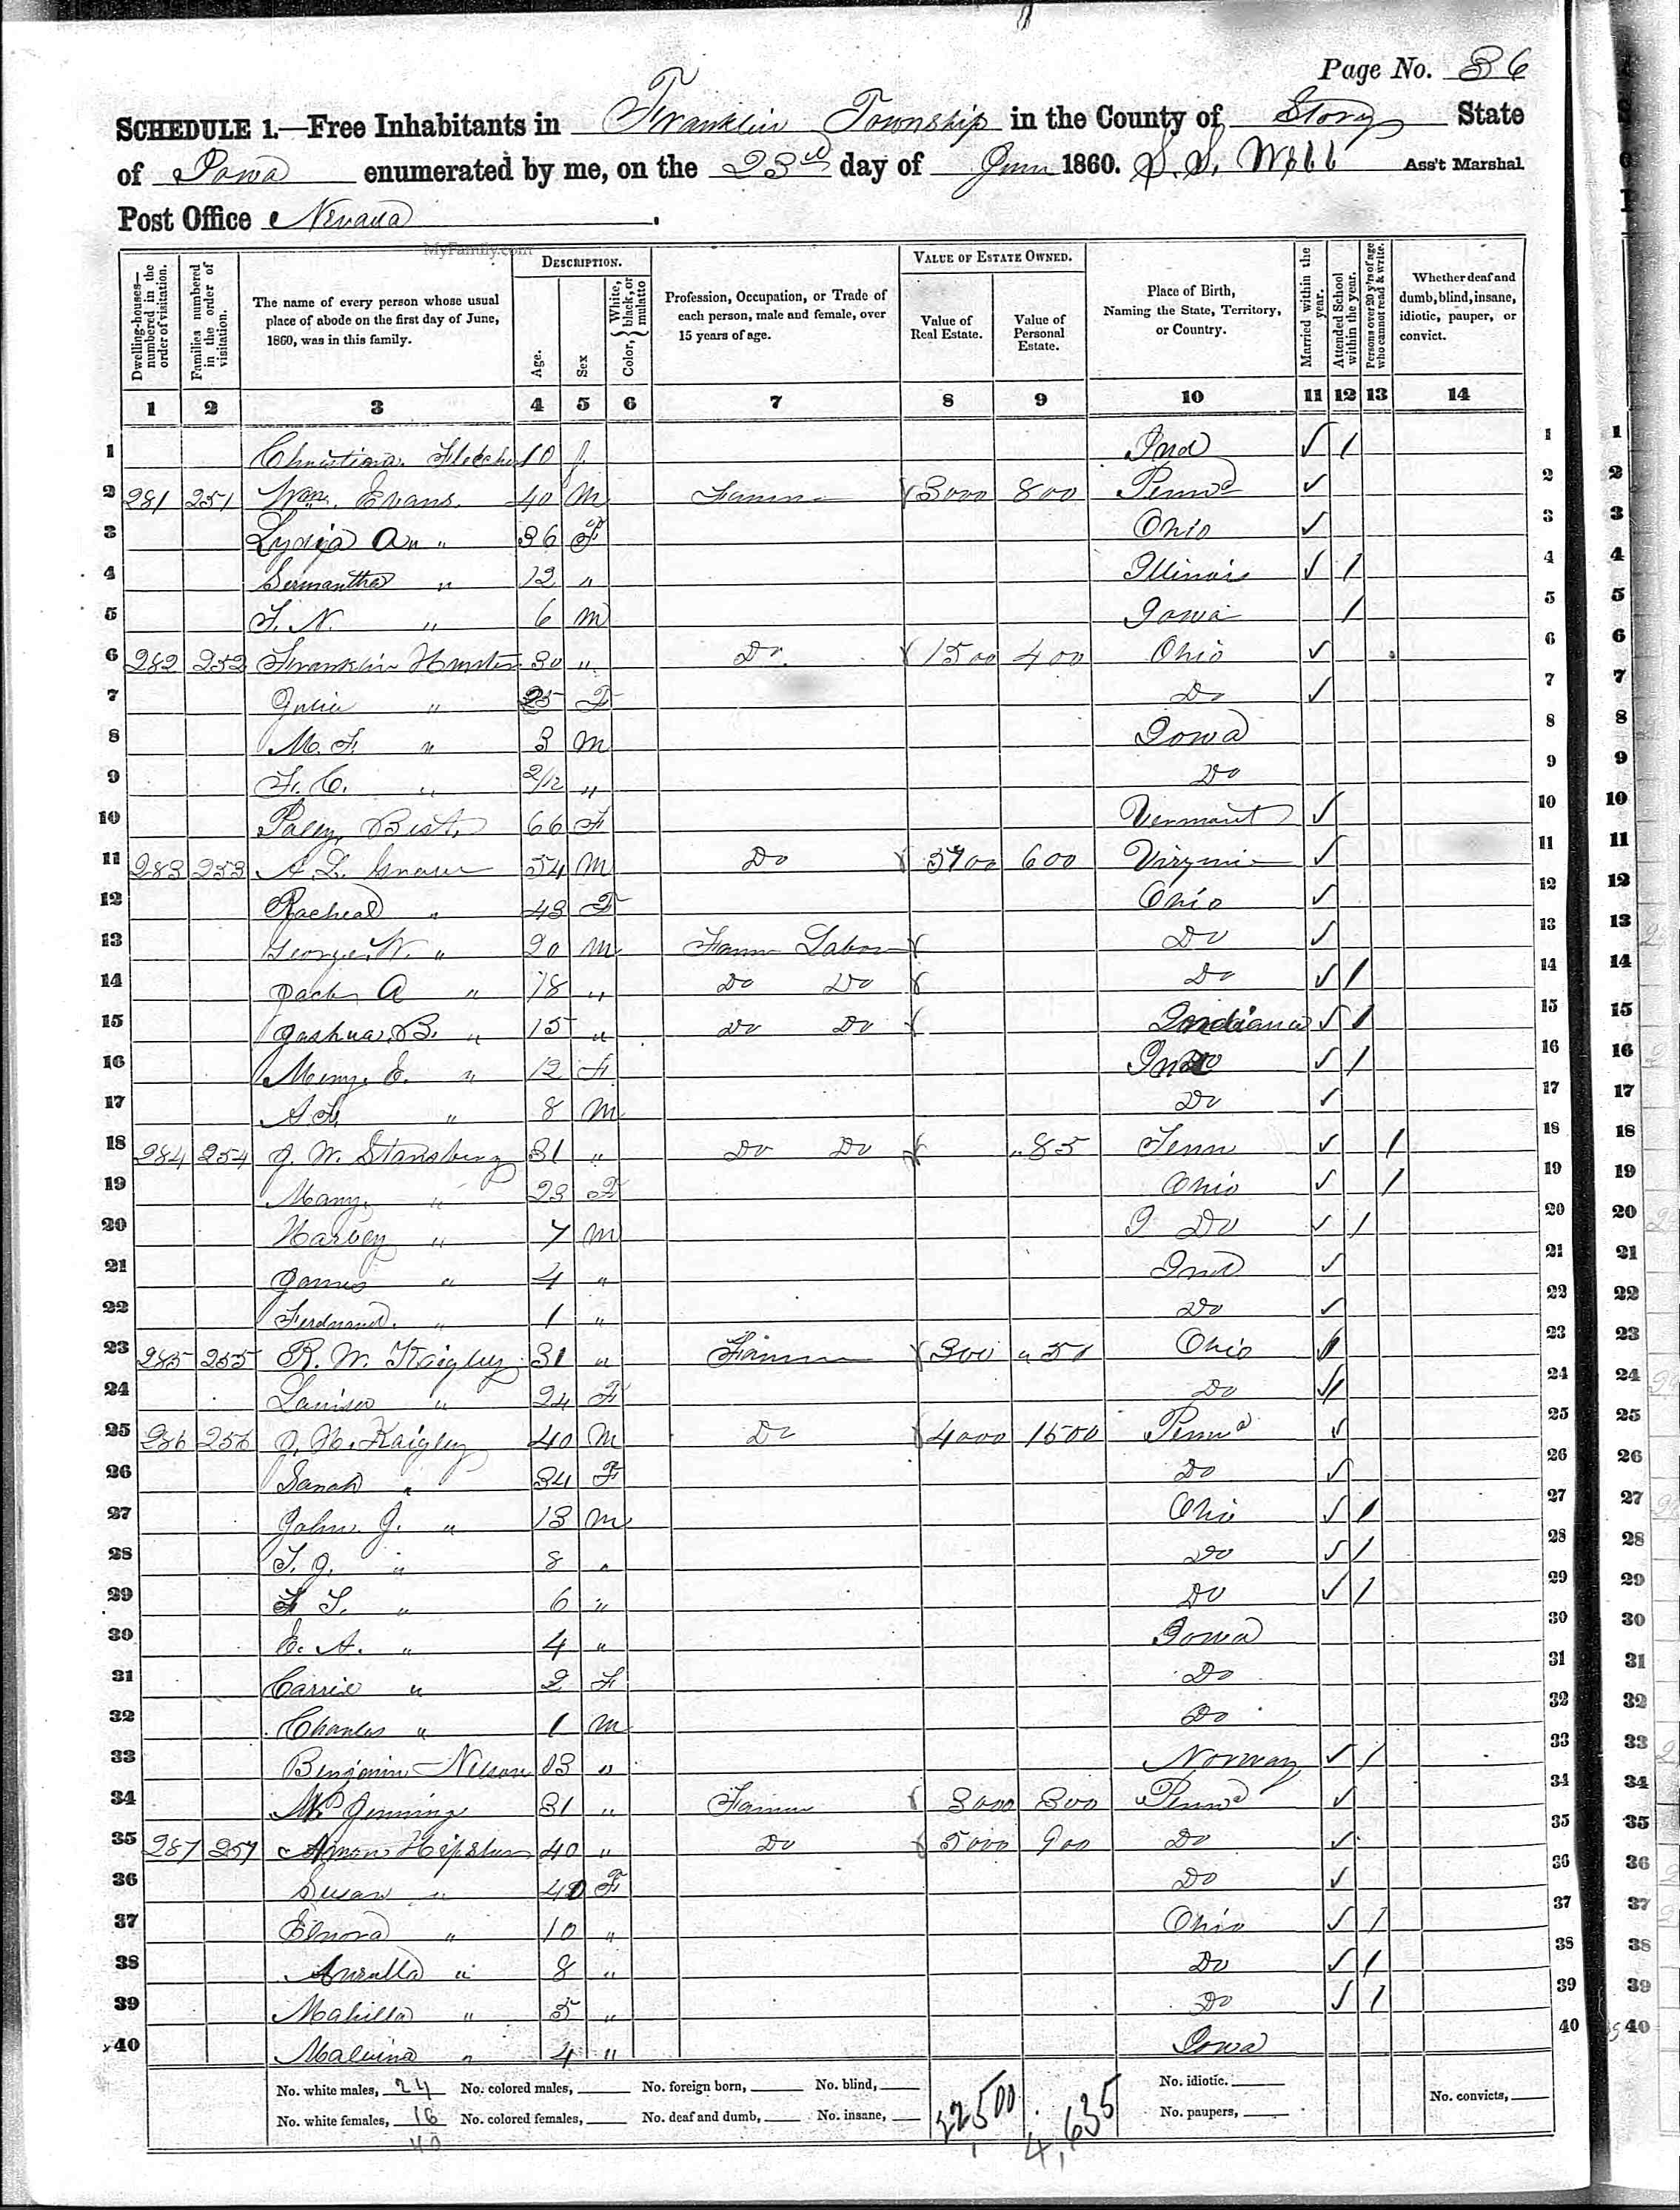 Page No. 36
SCHEDULE 1.—Free Inhabitants in Franklin Township in the County of Story State
of Iowa enumerated by me, on the 23d day of June 1860. S. S. Webb Ass't Marshal
Post Office Nevada.
MyFamily.com
Dwelling-houses—numbered in the order of visitation.
Families numbered in the order of visitation.
The name of every person whose usual place of abode on the first day of June, 1860, was in this family.
DESCRIPTION.
Age.
Sex
Color, { White, black, or mulatto
Profession, Occupation, or Trade of each person, male and female, over 15 years of age.
VALUE OF ESTATE OWNED.
Value of Real Estate.
Value of Personal Estate.
Place of Birth, Naming the State, Territory, or Country.
Married within the year.
Attended School within the year.
Persons over 20 y'rs of age who cannot read & write.
Whether deaf and dumb, blind, insane, idiotic, pauper, or convict.
1 2 3 4 5 6 7 8 9 10 11 12 13 14
1 Christiana Fletcher 10 f Ind / 1
2 281 251 Wm. Evans 40 M Farmer 3000 800 Penna 2
3 Lydia A " 36 F Ohio 3
4 Sermantha " 12 " Illinois / 4
5 F. N. " 6 M Iowa / 5
6 282 252 Franklin Hunter 30 " Do 1500 400 Ohio 6
7 Julia " 25 F Do 7
8 M. F. " 3 M Iowa 8
9 F. C. " 2/12 " Do 9
10 Best 66 F Vermont 10
11 283 253 A. L. 54 M Do 3700 600 Virginia 11
12 Racheal " 43 F Ohio 12
13 George W. " 20 M Farm Labor Do 13
14 A " 18 " Do Do Do / 14
15 Joshua B. " 15 " Do Do Indiana / 15
16 E. " 12 F / 16
17 " 8 M Do 17
18 284 254 J. W. Stansbery 31 " Do Do " 85 Tenn / 18
19 Mary " 23 F Ohio / 19
20 Harvey " 7 M Do / 20
21 James " 4 " Ind 21
22 Ferdnand. " 1 " Do 22
23 285 255 R. W. Kaigley 31 " Farmer 300 " 50 Ohio 23
24 Louisa " 24 F Do 24
25 286 256 Kaigley 40 M Do 4000 1500 Penna 25
26 Sarah " 34 F Do 26
27 John J. " 13 M Ohio / 27
28 T. J. " 8 " Do / 28
29 F S. " 6 " Do / 29
30 E. A. " 4 " Iowa 30
31 Carrie " 2 F Do 31
32 Charles " 1 M Do 32
33 Benjamin Nelson 13 " Norway / 33
34 Jennings 31 " Farmer 3000 300 Penna 34
35 287 257 40 " Do 5000 900 Do 35
36 Susan " 40 F Do 36
37 Elnora " 10 " Ohio / 37
38 " 8 " Do / 38
39 Mahilla " 5 " Do / 39
40 Malvina " 4 " Iowa 40
No. white males, 24 No. colored males, No. foreign born, No. blind, No. idiotic.
No. white females, 16 No. colored females, No. deaf and dumb, No. insane, No. paupers, No. convicts,
40
22,500 4,635